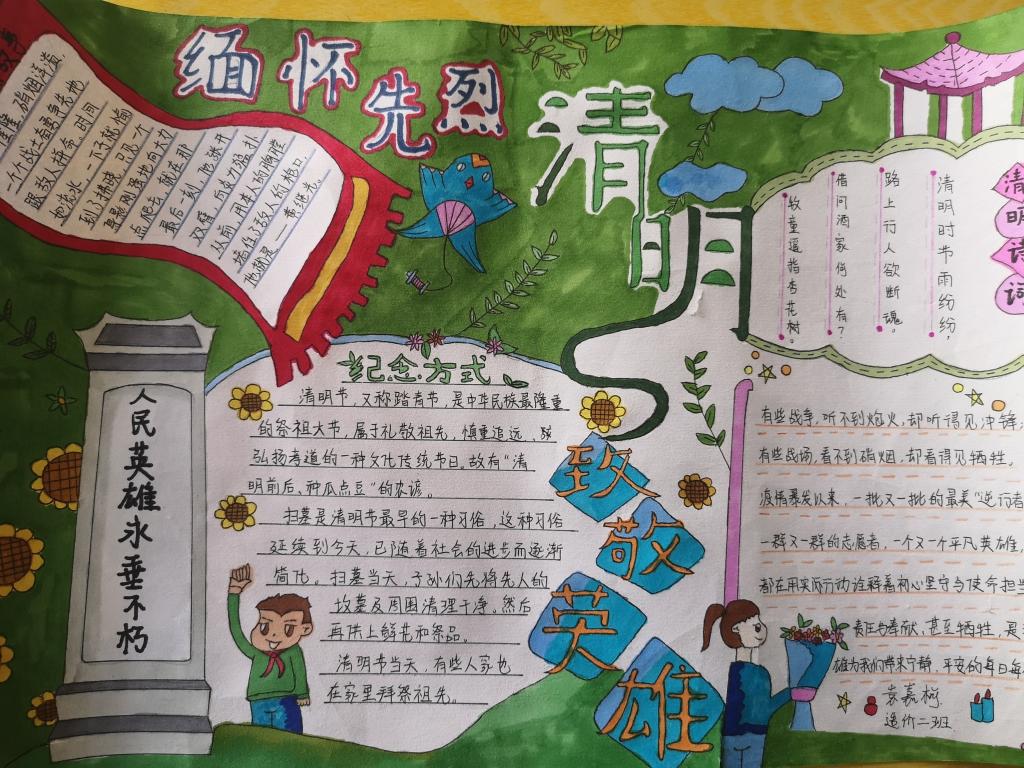 缅怀先烈
清明
一个个战士奋勇争先地
跟敌人拼命。时间
到了拂晓,只见一个
最后一刻,他张开
双臂,向火力猛扑
从前,用本人的胸膛
堵住了敌人的枪口
他就是——黄继光。
人民英雄永垂不朽
纪念方式
清明节,又称踏青节,是中华民族最隆重
的祭祖大节,属于礼敬祖先,慎重追远、
弘扬孝道的一种文化传统节日。故有“清
明前后、种瓜点豆”的农谚。
扫墓是清明节最早的一种习俗,这种习俗
延续到今天,已随着社会的进步而逐渐
简化。扫墓当天,子孙们先将先人的
坟墓及周围清理干净。然后
再供上鲜花和祭品。
清明节当天,有些人家也
在家里拜祭祖先。
致敬英雄
清明诗词
清明时节雨纷纷,
路上行人欲断魂。
借问酒家何处有?
牧童遥指杏花树。
有些战争,听不到炮火,却听得见冲锋;
有些战场,看不到硝烟,却看得见牺牲。
疫情暴发以来,一批又一批的最美“逆行者
一群又一群的志愿者,一个又一个平凡英雄,
都在用实际行动诠释着初心坚守与使命担当
责任与奉献,甚至牺牲,是
雄为我们带来宁静、平安的每日每
袁嘉
造价二班